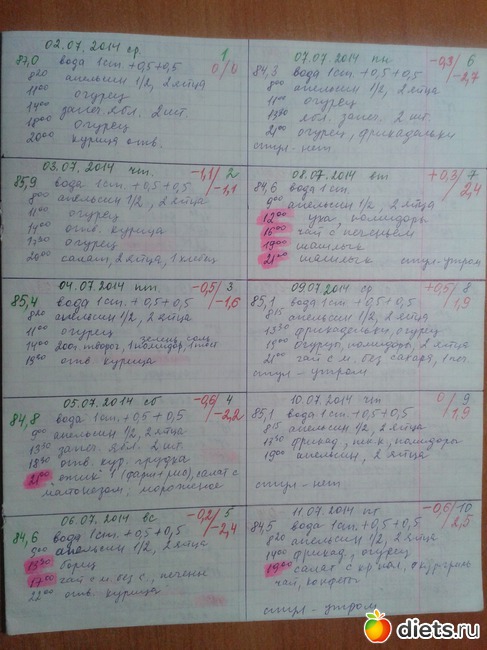 02.07.2014 ср 1
87,0 вода 1ст. +0,5+0,5 0/0
8²⁰ апельсин 1/2, 2 яйца
11⁰⁰ огурец
14⁰⁰ запеч. ябл. 2 шт.
18⁰⁰ огурец
20⁰⁰ курица отв.
03.07.2014 чт. -1,1/2
85,9 вода 1ст. +0,5+0,5 -1,1
8⁰⁰ апельсин 1/2, 2 яйца
11⁰⁰ огурец
14⁰⁰ отв. курица
огурец
20⁰⁰ салат, 2 яйца, 1 хлебец
04.07.2014 пт -0,5/3
85,4 вода 1ст. +0,5+0,5 -1,6
8²⁰ апельсин 1/2, 2 яйца
11⁰⁰ огурец
14⁰⁰ 200г. творог, 1 помидор,
отв. курица
05.07.2014 сб -0,6/4
84,8 вода 1ст. +0,5+0,5 -2,2
9⁰⁰ апельсин 1/2, 2 яйца
13³⁰ запеч. ябл. 2 шт.
18³⁰ отв. кур. грудка
21⁰⁰ (фарш+рис), салат с
майонезом, мороженое
06.07.2014 вс -0,2/5
84,6 вода 1ст. +0,5+0,5 -2,4
9⁰⁰ апельсин 1/2, 2 яйца
13³⁰ борщ
17⁰⁰ чай с м. без с., печенье
22⁰⁰ отв. курица
07.07.2014 пн -0,3/6
84,3 вода 1ст. +0,5+0,5 -2,7
8⁰⁰ апельсин 1/2, 2 яйца
11⁰⁰ огурец
13³⁰ ябл. запеч. 2 шт.
21⁰⁰ огурец, фрикадельки
стул - нет.
08.07.2014 вт +0,3/7
84,6 вода 1ст. 2,4
9⁰⁰ апельсин 1/2, 2 яйца
12⁰⁰ уха, помидоры
16⁰⁰ чай с печеньем
19⁰⁰ шашлык
21⁰⁰ шашлык стул - утром
09.07.2014 ср +0,5/8
85,1 вода 1ст. +0,5+0,5 1,9
8¹⁵ апельсин 1/2, 2 яйца
13³⁰ фрикадельки, огурец
огурец, помидоры, 2 яйца
21⁰⁰ чай с м. без сахара,
стул - утром
10.07.2014 чт 0/9
85,1 вода 1ст. +0,5+0,5 1,9
8¹⁵ апельсин 1/2, 2 яйца
помидоры
19⁰⁰ апельсин, 2 яйца
стул - нет.
11.07.2014 пт -0,6/10
84,5 вода 1ст. +0,5+0,5 2,5
8²⁰ апельсин 1/2, 2 яйца
14⁰⁰ фрикад., огурец
19⁰⁰ салат с
чай, конфеты
стул - утром
diets.ru